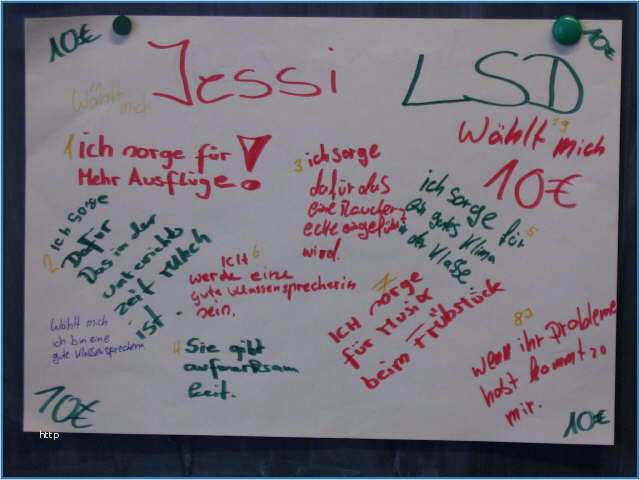 10€
10€
Jessi LSD
Wählt
mich
Wählt mich
10€
1 ich sorge für
Mehr Ausflüge!
3 ich sorge
dafür das
eine Raucher-
ecke eingeführt
wird.
ich sorge für 5
ein gutes Klima
in der Klasse
2 ich sorge
Dafür
Das in der
unterichts
zeit
ist.
Ich 6
werde eine
gute Klassensprecherin
sein.
7
ich sorge
für Musik
beim Frübstück
Wählt mich
ich bin eine
gute Klassensprecherin
4 Sie gibt
aufmerksam
keit.
8
wenn ihr Probleme
habt kommt zu
mir.
10€
10€
http